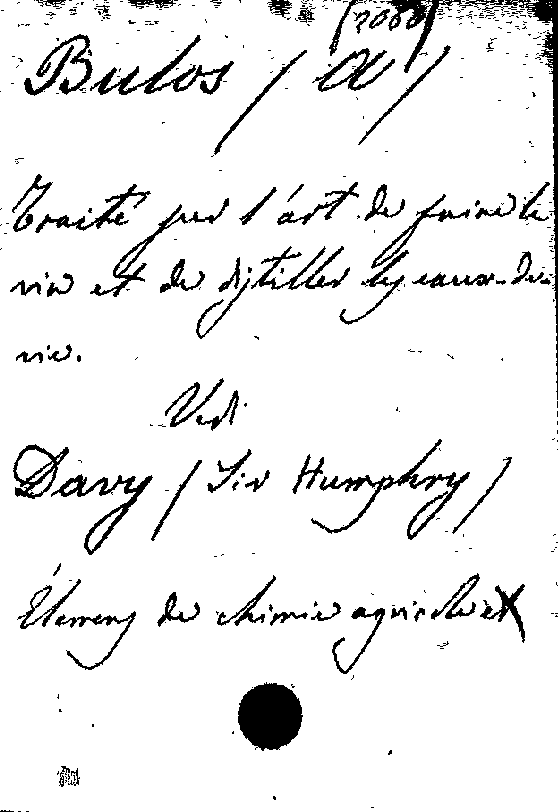 Bulos / A /
Traité sur l'art de faire le
vin et de distiller les eaux-de-
vie.
Vedi
Davy / Sir Humphry /
Élemens de chimie agricole et